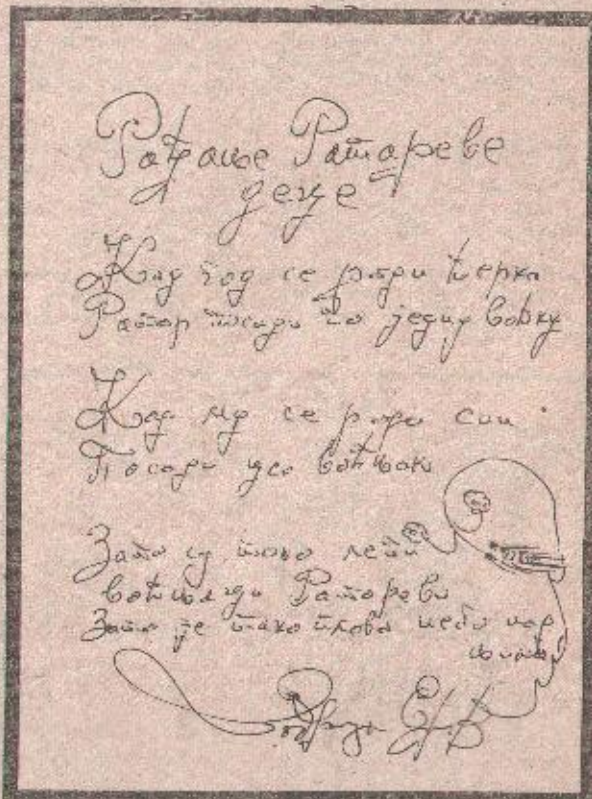 Рађање Ратареве
деце
Кад год се роди ћерка
Ратар посади по једну воћку
Кад му се роди син
Посади цео воћњак
Зато су тако лепи
воћњаци Ратареви
Зато је тако плаво небо над